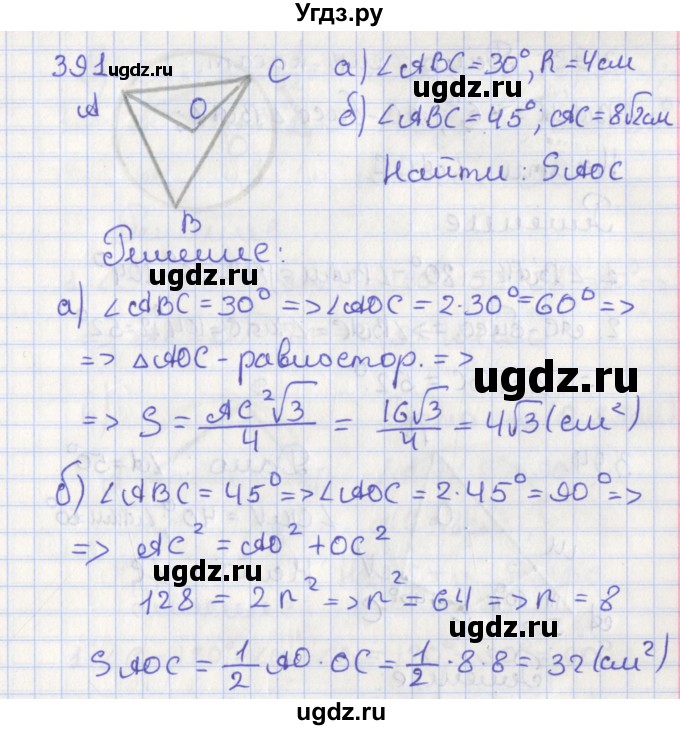 Угдз.ру
391 ugdz.ru
A
O
C
B
а) ∠ABC = 30°, R = 4 см
б) ∠ABC = 45°; AC = 8√2 см
Найти: SAOC
Решение:
ugdz.ru
а) ∠ABC = 30° => ∠AOC = 2·30° = 60° =>
=> △AOC - равностор. =>
ugdz.ru
=> S = AC²√3/4 = 16√3/4 = 4√3 (см²)
ugdz.ru
б) ∠ABC = 45° => ∠AOC = 2·45° = 90° =>
=> AC² = AO² + OC²
ugdz.ru
128 = 2r² => r² = 64 => r = 8
ugdz.ru
SAOC = 1/2 AO·OC = 1/2·8·8 = 32 (см²)
ugdz.ru
ugdz.ru